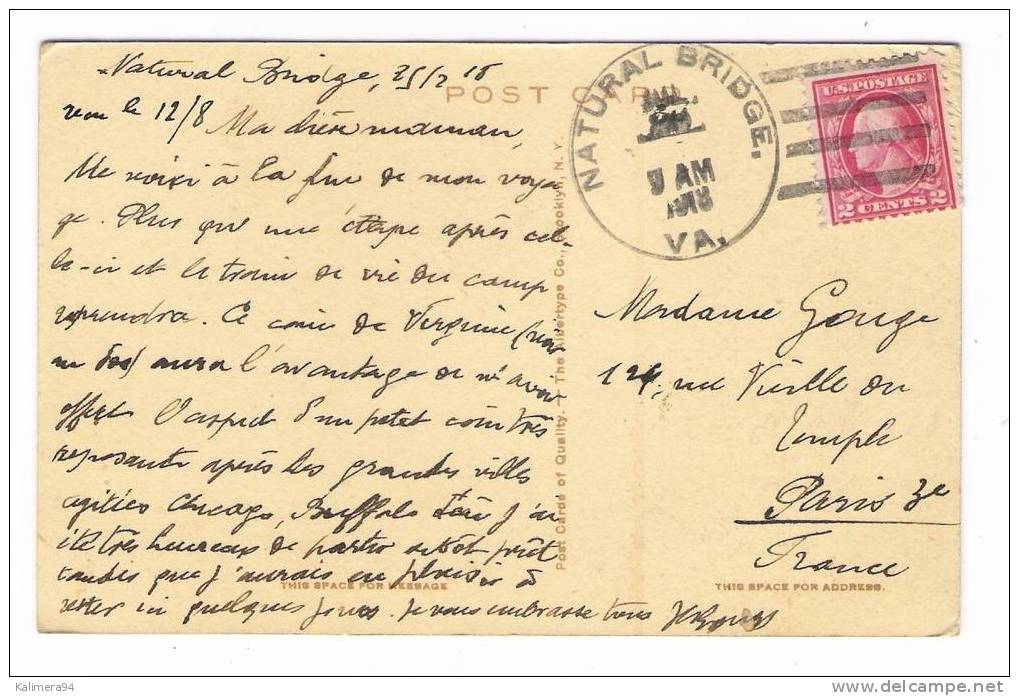 Natural Bridge, 25/2 18
POST CARD
le 12/8 Ma chère maman,
Me voici à la fin de mon voya
ge. Plus qu'une étape après cel-
le-ci et le train de vie du camp
reprendra. Ce coin de Virginie (voir
au dos) aura l'avantage de m'avoir
offert l'aspect d'un petit coin très
reposant après les grandes villes
agitées Chicago, Buffalo J'ai
été très heureux de partir
tandis que j'aurais eu plaisir à
rester ici quelques jours. Je vous embrasse tous
THIS SPACE FOR MESSAGE
Post Cards of Quality. — The Albertype Co., Brooklyn, N.Y.
NATURAL BRIDGE.
9 AM
1918
VA.
U.S. POSTAGE
2 CENTS 2
Madame Gouge
124, rue Vieille du
Temple
Paris 3e
France
THIS SPACE FOR ADDRESS.
Kalimera94
www.delcampe.net